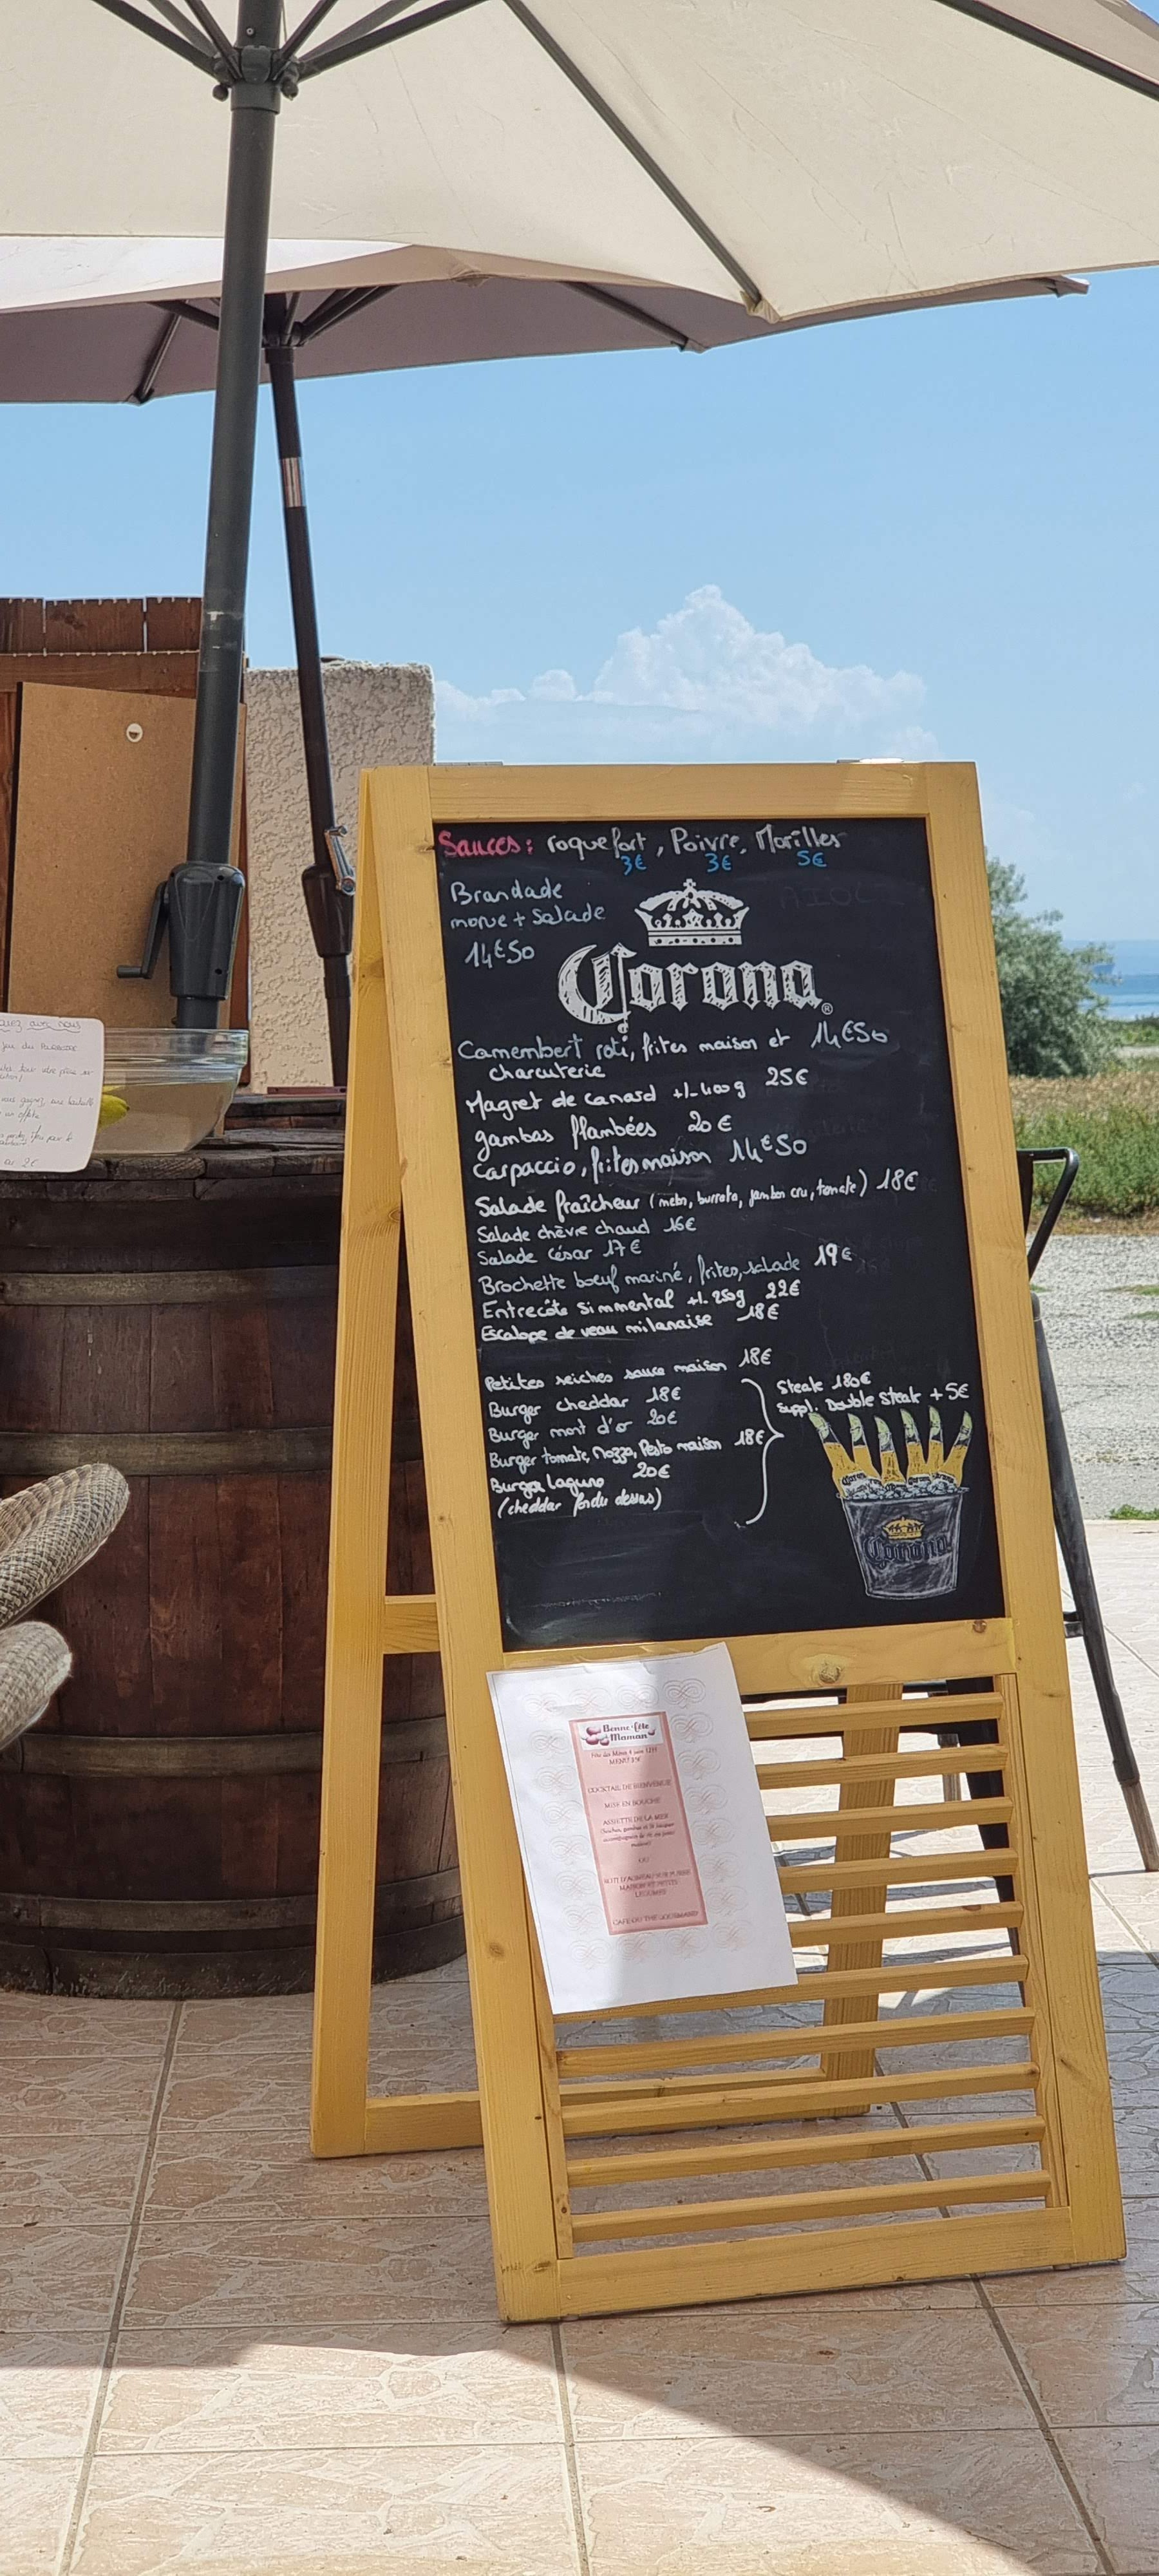 Sauces: roquefort, Poivre, Morilles
3€ 3€ 5€
Brandade
morue + salade
14€50
Corona
Camembert roti, frites maison et 14€50
charcuterie
Magret de canard +/- 400g 25€
gambas flambées 20€
carpaccio, frites maison 14€50
Salade fraîcheur (melon, burrata, jambon cru, tomate) 18€
Salade chèvre chaud 16€
Salade césar 17€
Brochette boeuf mariné, frites, salade 19€
Entrecôte Simmental +/- 250g 22€
Escalope de veau milanaise 18€
Petites seiches sauce maison 18€
Burger cheddar 18€
Burger mont d'or 20€
Burger tomate, Mozza, Pesto maison 18€
Burger laguno 20€
(cheddar fondu dessus)
Steak 180€
Suppl. Double steak + 5€
Corona
Bonne fête
Maman
COCKTAIL DE BIENVENUE
MISE EN BOUCHE
ASSIETTE DE LA MER
OU
MAISON ET PETITS
LEGUMES
CAFE OU THE GOURMAND